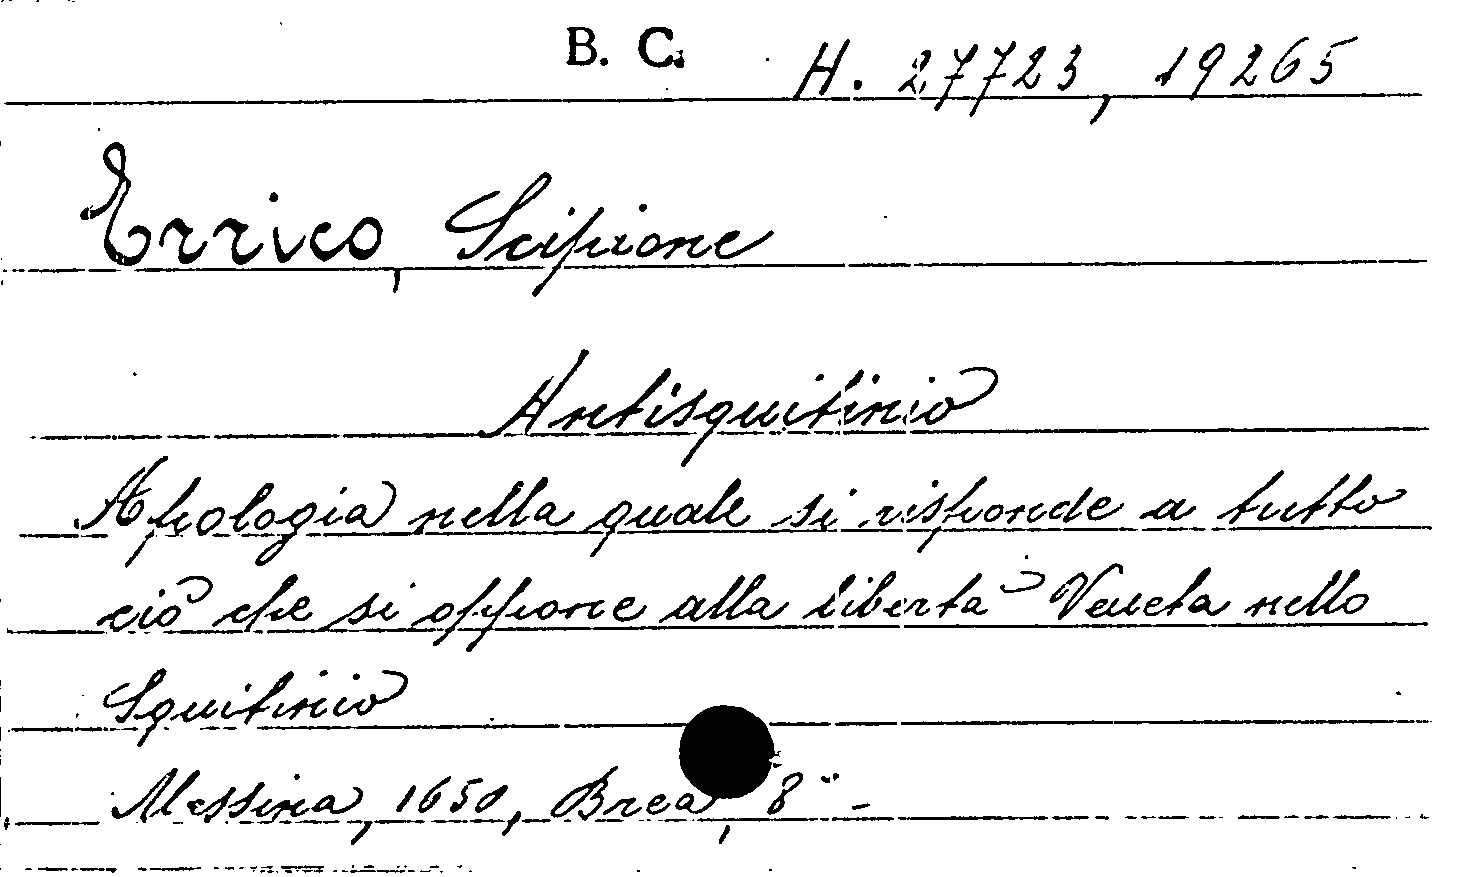 B. C. H. 27723, 19265
Errico, Scipione
Antisquitinio
Apologia nella quale si risponde a tutto
ciò che si oppone alla libertà Veneta nello
Squitinio
Messina, 1650, Brea, 8° -